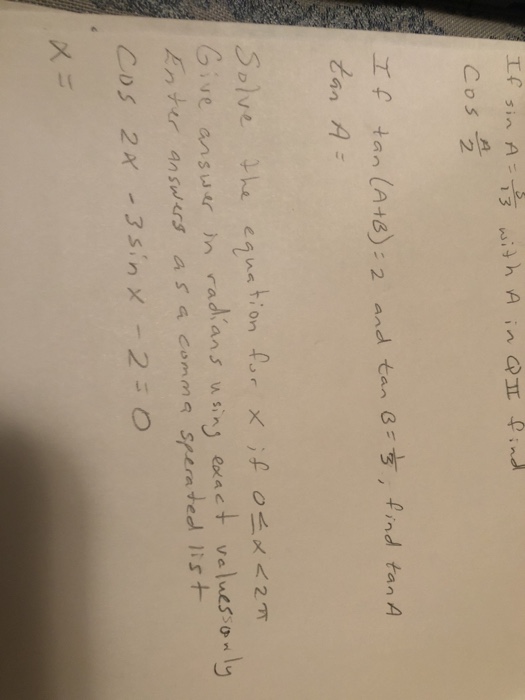 If sin A = 5/13 with A in QII find
cos A/2
If tan(A+B)=2 and tan B = 1/3, find tan A
tan A =
Solve the equation for x if 0≤x<2π
Give answer in radians using exact values only
Enter answers as a comma sperated list
cos 2x - 3 sin x - 2 = 0
x =